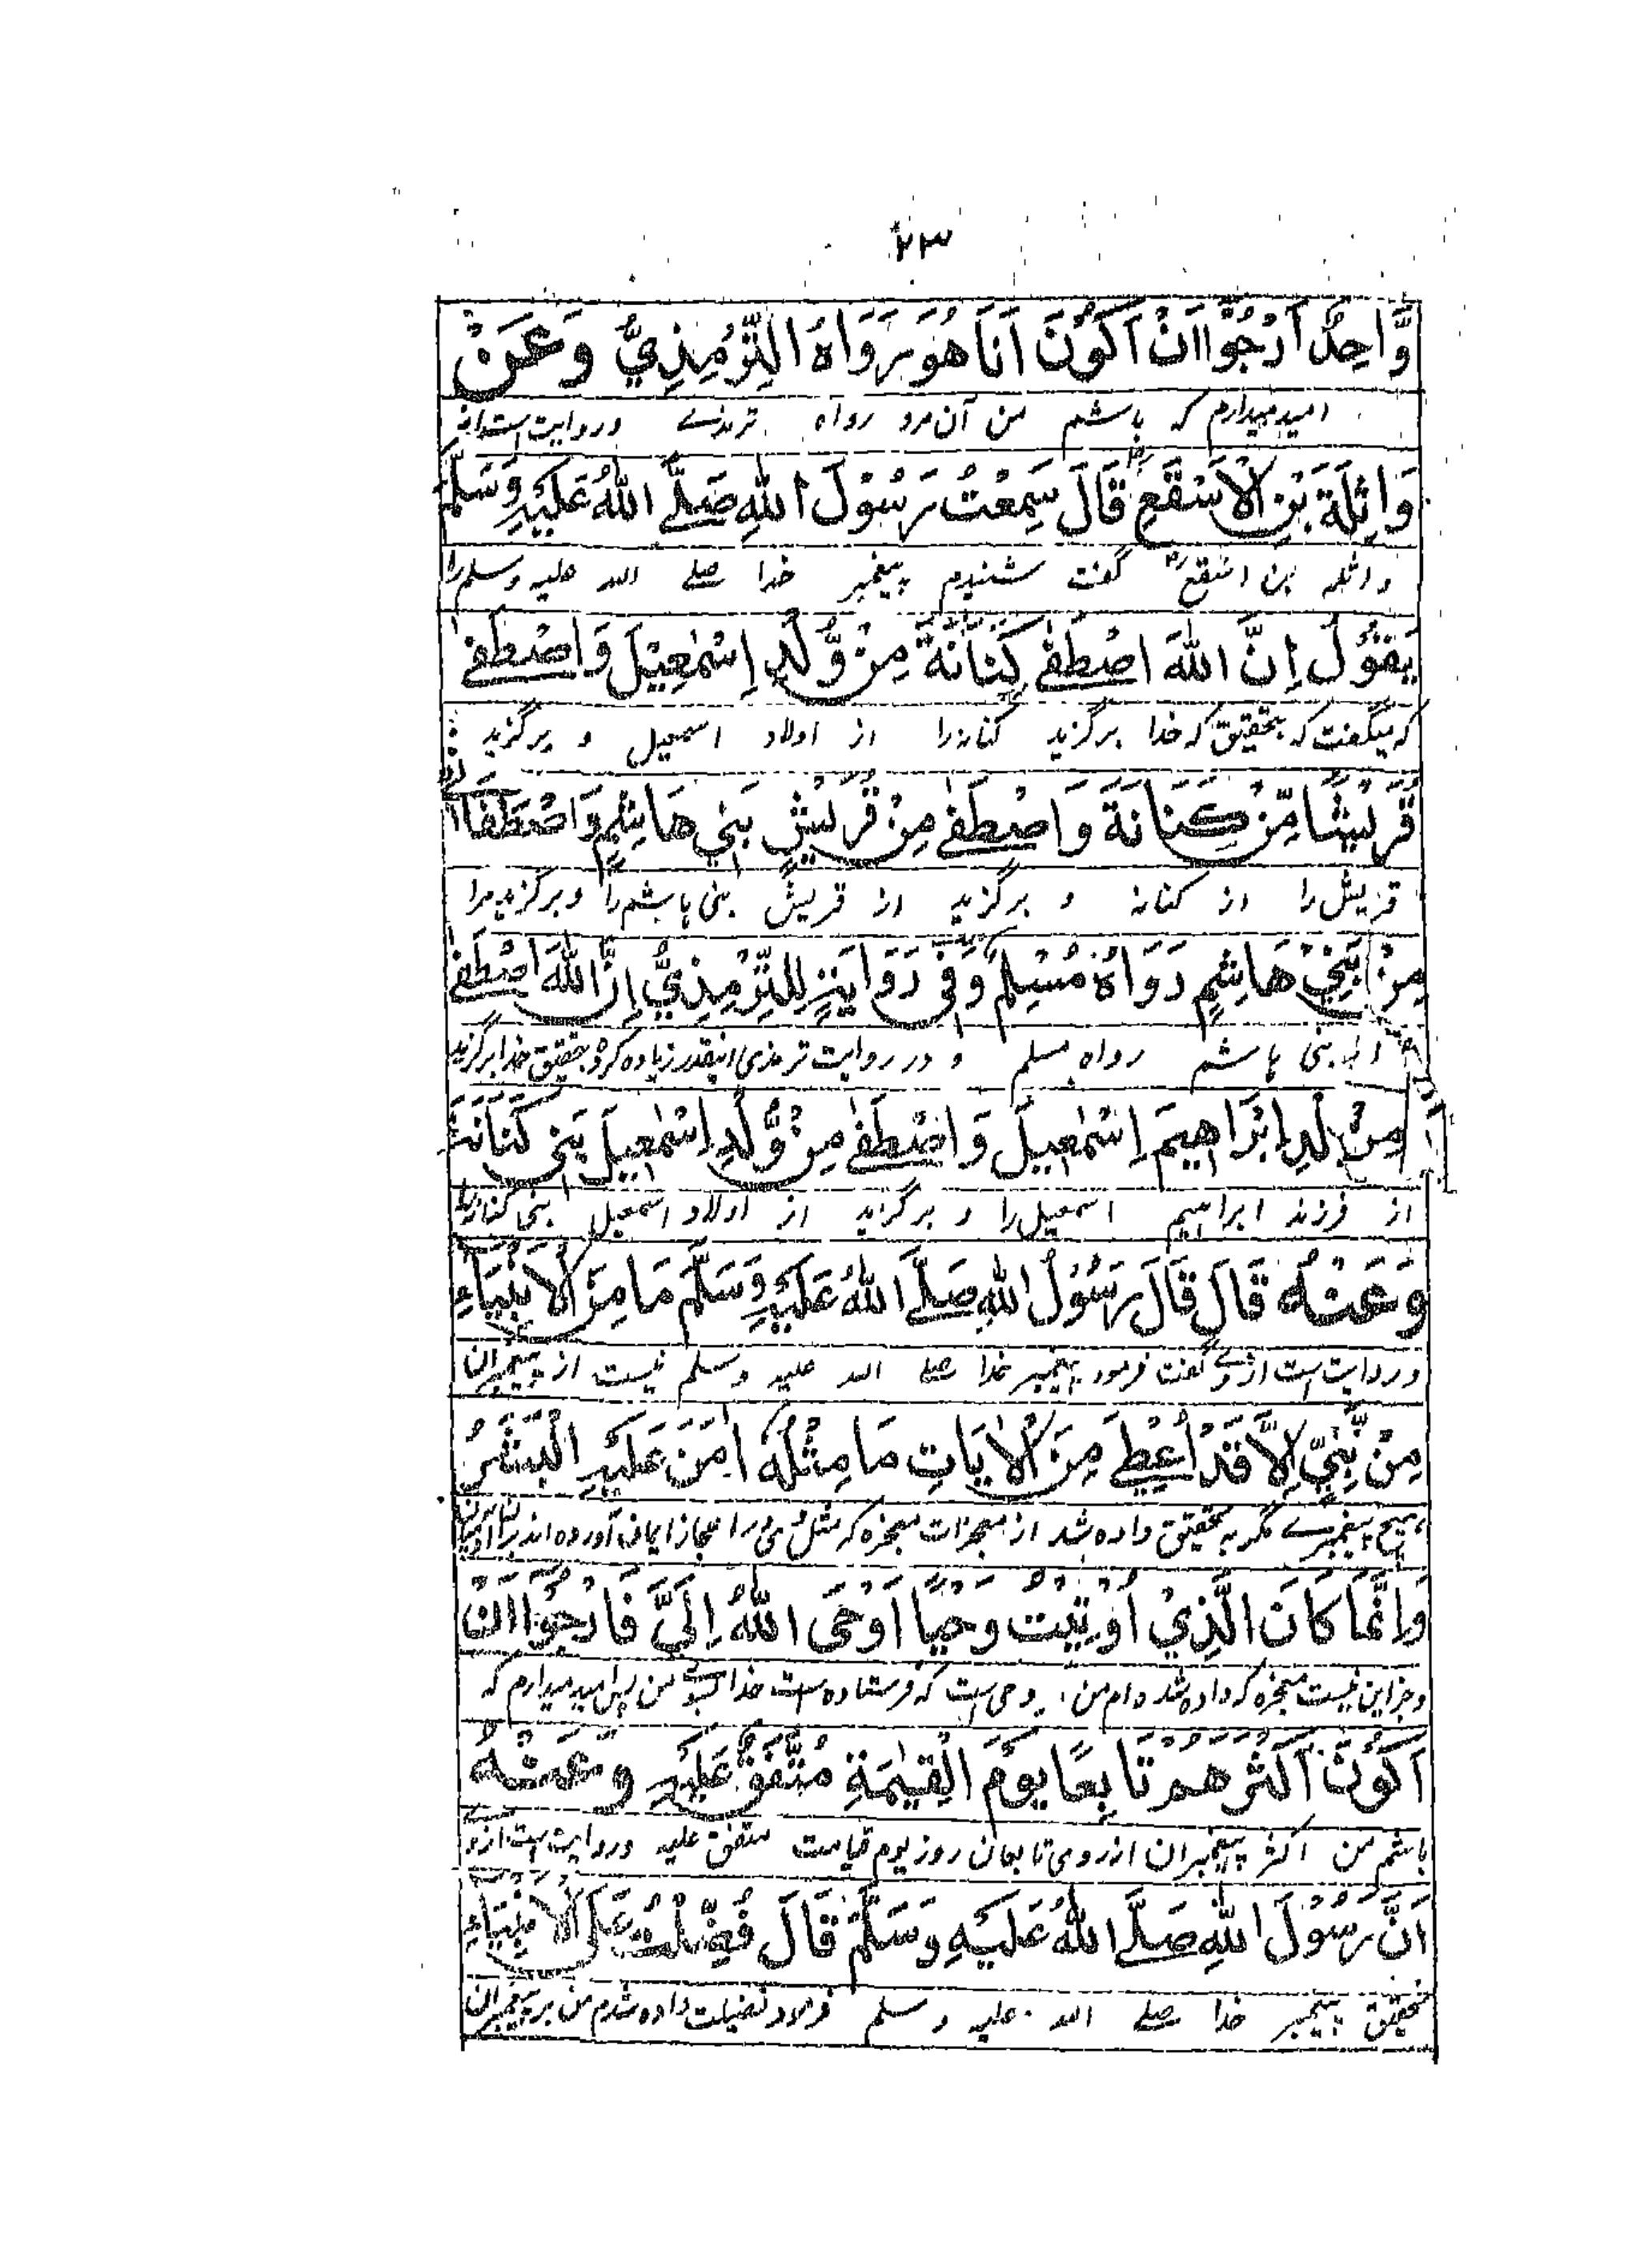 ۲۳
وَّاحِدٌ اَرْجُوْا اَنْ اَكُوْنَ اَنَا هُوَ رَوَاهُ التِّرْمِذِيُّ وَعَنْ
امید میدارم که باشم من آن مرد رواه ترمذے و روایت است از
وَاثِلَةَ بْنِ الْاَسْقَعِ قَالَ سَمِعْتُ رَسُوْلَ اللّٰهِ صَلَّے اللّٰهُ عَلَيْهِ وَسَلَّمَ
واثله بن اسقع گفت شنیدم پیغمبر خدا صلے الله علیه وسلم را
يَقُوْلُ اِنَّ اللّٰهَ اصْطَفٰے كِنَانَةَ مِنْ وُّلْدِ اِسْمٰعِيْلَ وَاصْطَفٰے
که میگفت که بتحقیق که خدا برگزید کنانه را از اولاد اسمعیل و برگزید
قُرَيْشًا مِّنْ كِنَانَةَ وَاصْطَفٰے مِنْ قُرَيْشٍ بَنِي هَاشِمٍ وَاصْطَفَانِيْ
قریش را از کنانه و برگزید از قریش بنی هاشم را و برگزید مرا
مِنْ بَنِيْ هَاشِمٍ رَوَاهُ مُسْلِمٌ وَفِي رَوَايَةٍ لِلتِّرْمِذِيُّ اِنَّ اللّٰهَ اصْطَفٰے
از بنی هاشم رواه مسلم و در روایت ترمذی اینقدر زیاده کرد بتحقیق خدا برگزید
مِنْ وُلْدِ اِبْرَاهِيْمَ اِسْمٰعِيْلَ وَاصْطَفٰے مِنْ وُّلْدِ اِسْمٰعِيْلَ بَنِي كَنَانَةَ
از فرزند ابراهیم اسمعیل را و برگزید از اولاد اسمعیل بنی کنانه را
وَعَنْهُ قَالَ قَالَ رَسُوْلُ اللّٰهِ صَلَّے اللّٰهُ عَلَيْهِ وَسَلَّمَ مَا مِنَ الْاَنْبِيَاءِ
و روایت است از وے گفت فرمود پیغمبر خدا صلے الله علیه وسلم نیست از پیغمبران
مِنْ نَّبِيٍّ اِلَّا قَدْ اُعْطِےَ مِنَ الْاٰيَاتِ مَا مِثْلُهُ اٰمَنَ عَلَيْهِ الْبَشَرُ
هیچ پیغمبرے مگر به تحقیق داده شد از معجزات معجزه که مثل وی را ایمان آورده اند بران
وَاِنَّمَا كَانَ الَّذِيْ اُوْتِيْتُ وَحْيًا اَوْحَى اللّٰهُ اِلَيَّ فَاَرْجُوْا اَنْ
و جز این نیست معجزه که داده شده ام من وحی است که فرستاده است خدا بسوے من پس امید میدارم که
اَكُوْنَ اَكْثَرَهُمْ تَابِعًا يَوْمَ الْقِيٰمَةِ مُتَّفَقٌ عَلَيْهِ وَعَنْهُ
باشم من اکثر پیغمبران از روی تابعان روز یوم قیامت متفق علیه و روایت است از وے
اَنَّ رَسُوْلَ اللّٰهِ صَلَّے اللّٰهُ عَلَيْهِ وَسَلَّمَ قَالَ فُضِّلْتُ عَلَى الْاَنْبِيَاءِ
تحقیق پیغمبر خدا صلے الله علیه وسلم فرمود فضیلت داده شدم من بر پیغمبران